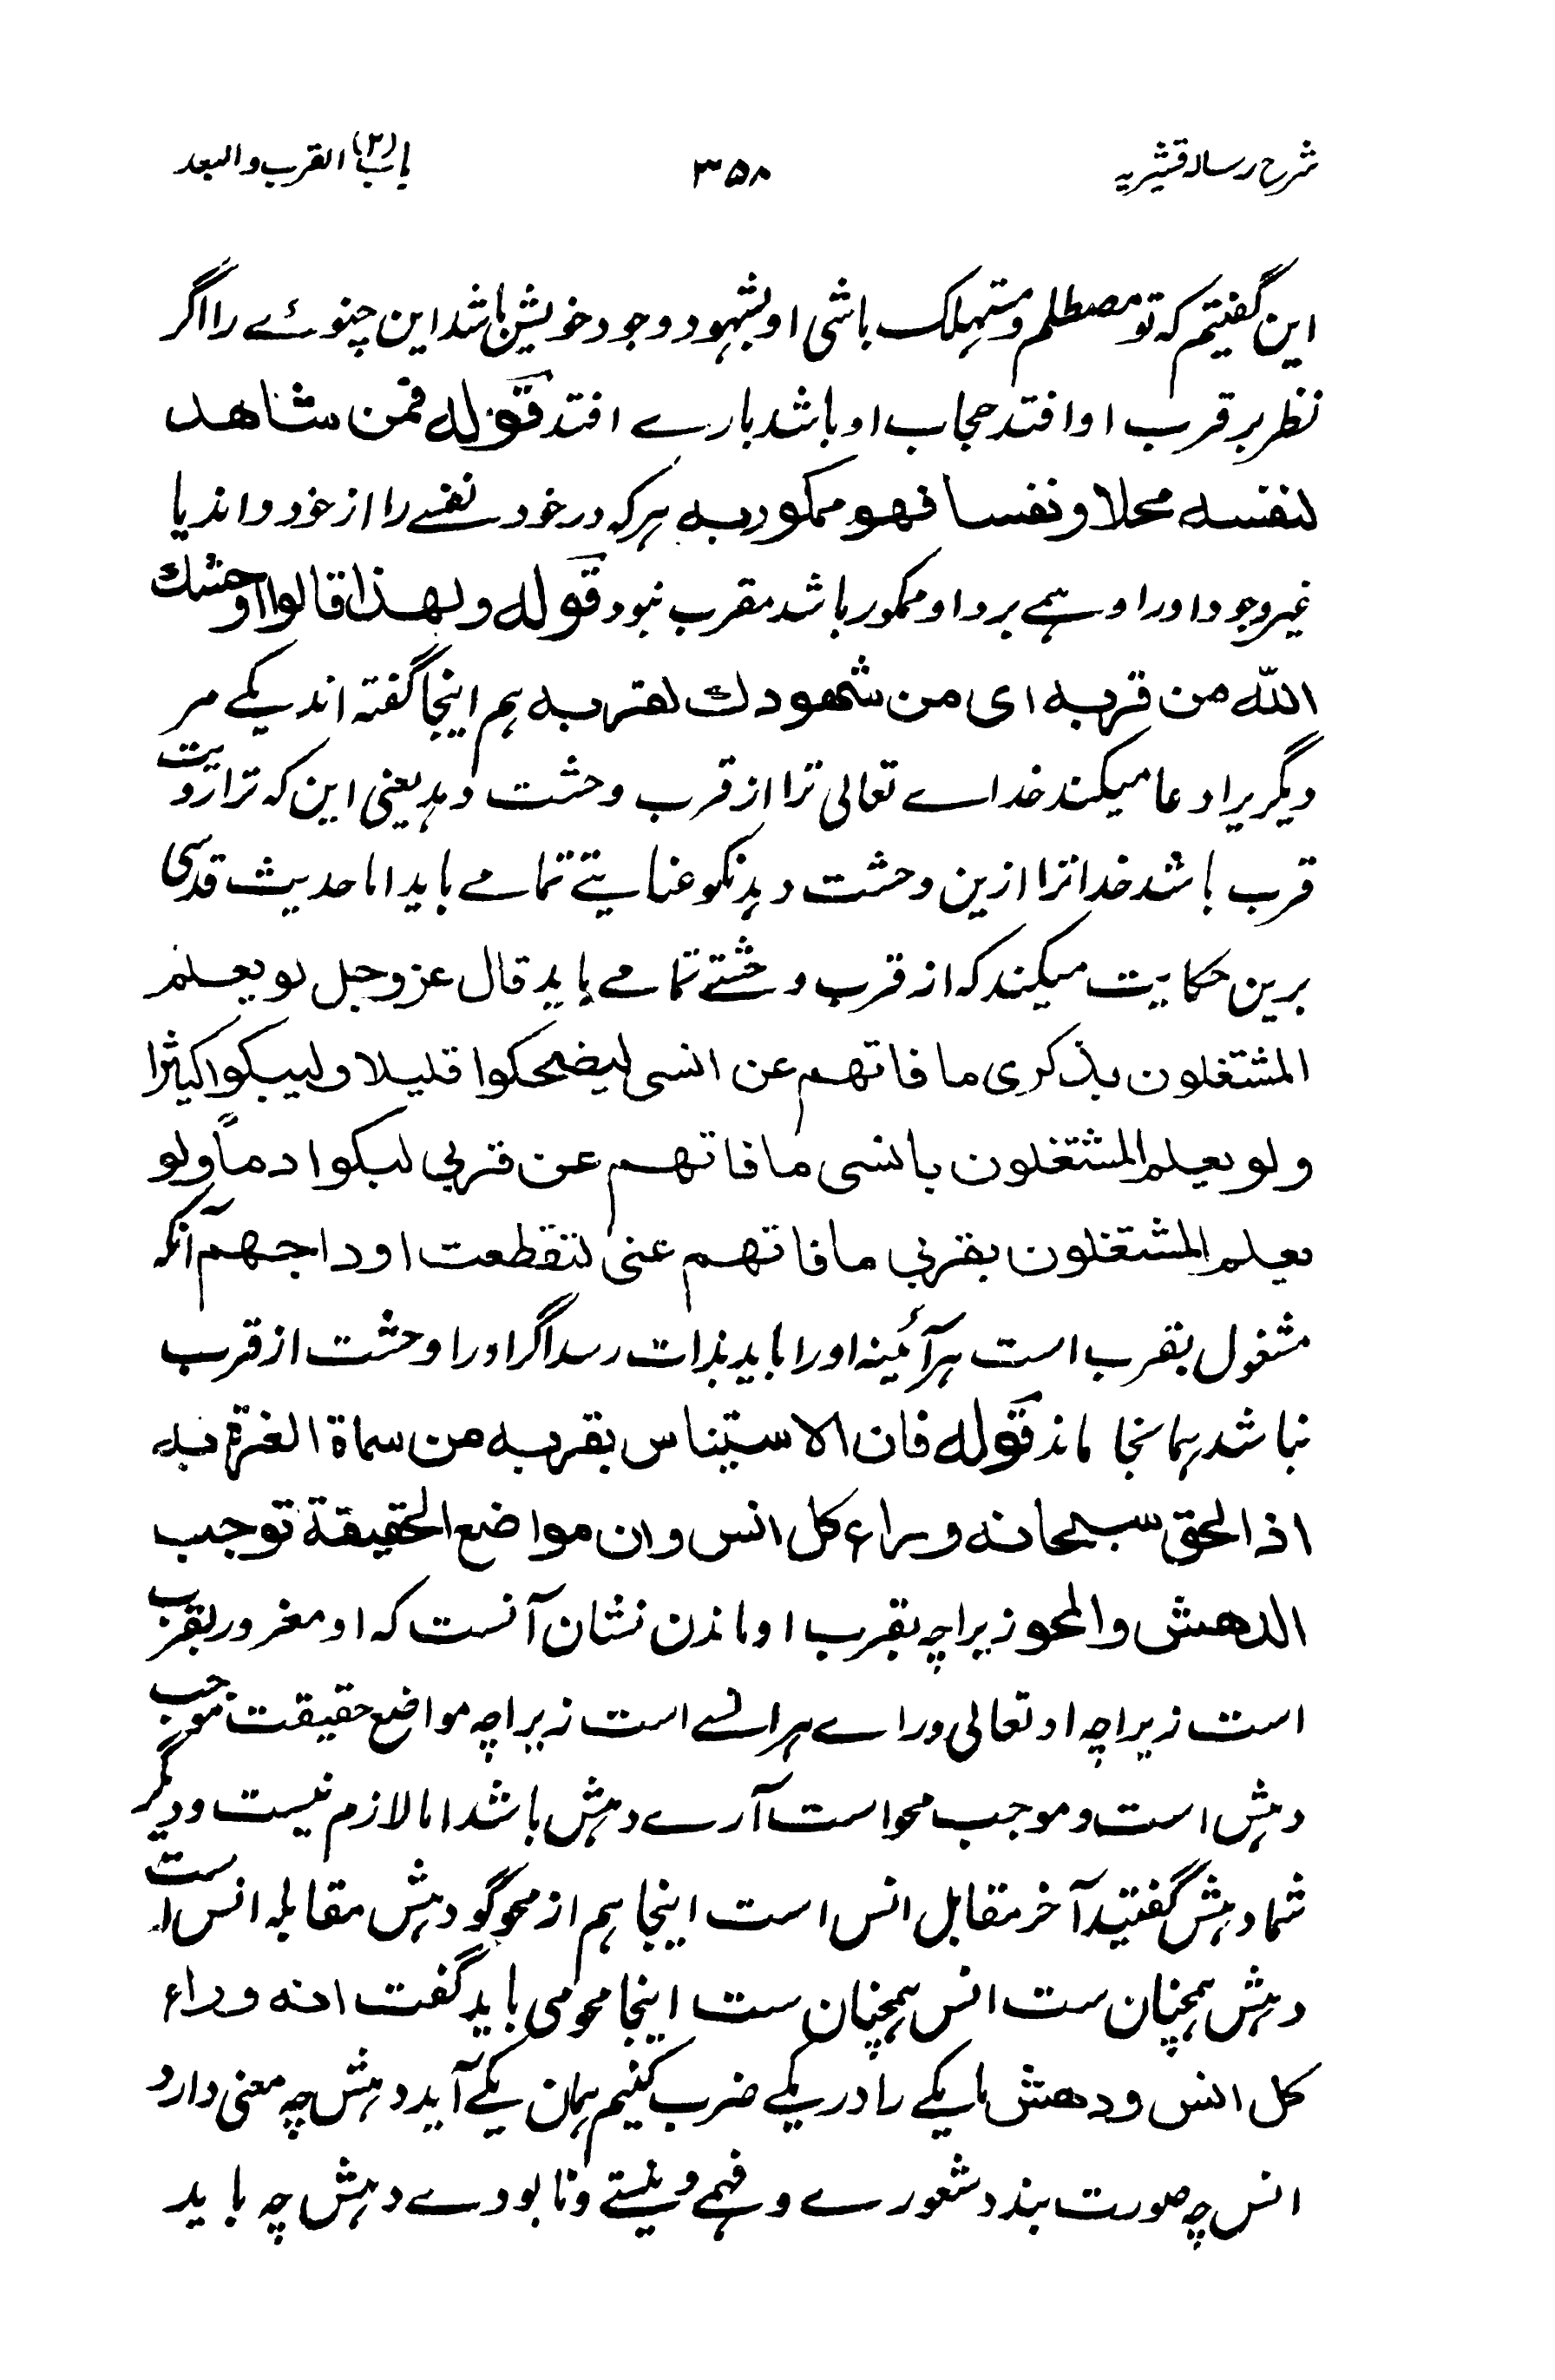 شرح رسالہ قشیریہ ۳۵۸ باب (۲) القرب والبعد
این گفتیم کہ تو مصطلم و مستہلک باشی او بشہود وجود خویش باشد این چنوئے را اگر
نظر بر قرب او افتد حجاب او باشد بارے افتد قولہ فمن شاھد
لنفسہ محلا و نفسا فھو ممکور بہ ہر کہ در خود نفسے را از خود داند یا
غیر وجود اورا وہمے برد او ممکور باشد مقرب نبود قولہ ولھذا قالوا اوحشك
اللّٰہ من قربہ ای من شھودك لقربہ ہم اینجا گفتہ اند یکے مر
دیگریرا دعا میکند خداے تعالی ترا از قرب وحشت دہد یعنی این کہ ترا رویت
قرب باشد خدا ترا ازین وحشت دہد نکو عنایتے تمامے باید اما حدیث قدسی
برین حکایت میکند کہ از قرب وحشتے تمامے باید قال عز وجل لو یعلم
المشتغلون بذکری ما فاتھم عن انسی لیضحکوا قلیلا ولیبکوا کثیرا
ولو یعلم المشتغلون بانسی ما فاتھم عن قربی لبکوا دماً ولو
یعلم المشتغلون بقربی ما فاتھم عنی لتقطعت اوداجھم آنکہ
مشغول بقرب است ہر آئینہ اورا باید بذات رسد اگر اورا وحشت از قرب
نباشد ہمانجا ماند قولہ فان الاستیناس بقربہ من سماة الغرة بہ
اذ الحق سبحانہ وراء کل انس وان مواضع الحقیقة توجب
الدھش والمحو زیراچہ بقرب او ماندن نشان آنست کہ او مغرور بقرب
است زیراچہ او تعالی وراے ہر انسے است زیراچہ مواضع حقیقت موجب
دہش است و موجب محو است آرے دہش باشد اما لازم نیست و دیگر
شما دہش گفتید آخر مقابل انس است اینجا ہم از محو گو دہش مقابلہ انس است
دہش ہمچنان ست انس ہمچنان ست اینجا محو می باید گفت انہ وراء
کل انس ودھش ما یکے را در یکے ضرب کنیم ہمان یکے آید دہش چہ معنی دارد
انس چہ صورت بندد شعورے و فہمے و نیستے و نابودے دہش چہ باید